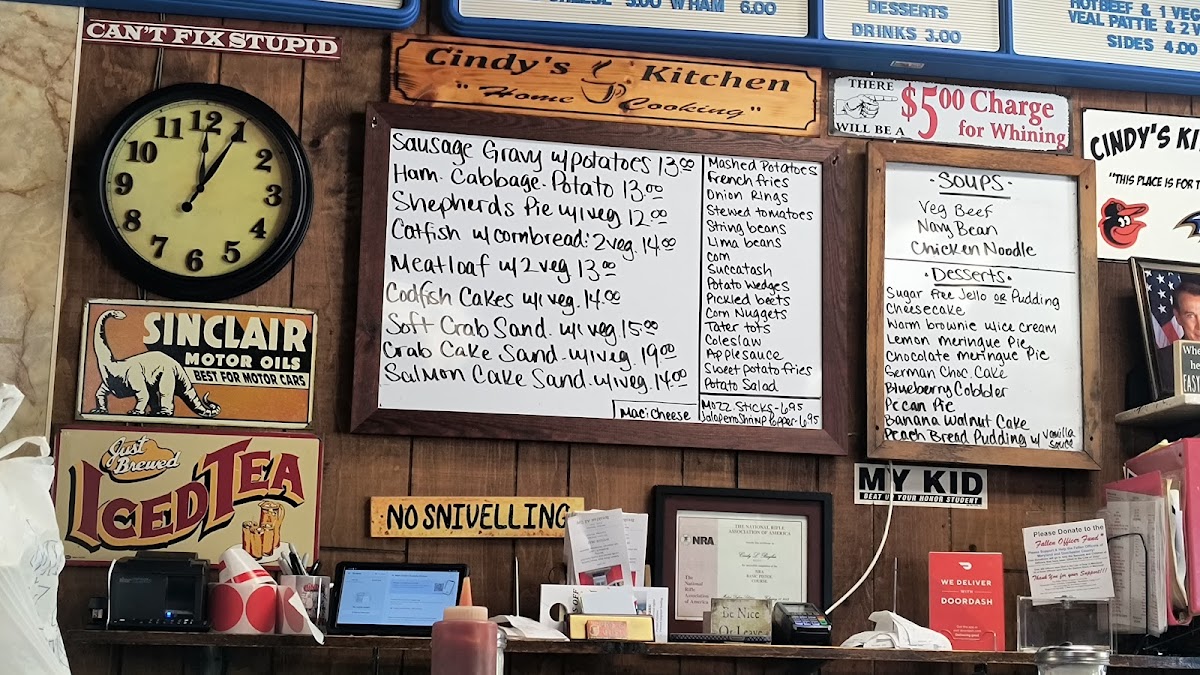 CHEESE 5.00 WHAM 6.00
DESSERTS
DRINKS 3.00
HOT BEEF & 1 VEG
VEAL PATTIE & 2 V
SIDES 4.00
CAN'T FIX STUPID
Cindy's Kitchen
"Home Cooking"
THERE
WILL BE A
$5.00 Charge
for Whining
CINDY'S KI
"THIS PLACE IS FOR T
12
1
2
3
4
5
6
7
8
9
10
11
Sausage Gravy w/potatoes 13.00
Ham-Cabbage-Potato 13.00
Shepherds Pie w/1 veg 12.00
Catfish w/cornbread: 2 veg. 14.00
Meatloaf w/2 veg 13.00
Codfish Cakes w/1 veg. 14.00
Soft Crab Sand. w/1 veg. 15.00
Crab Cake Sand. w/1 veg. 19.00
Salmon Cake Sand. w/1 veg. 14.00
Mac: Cheese
Mashed Potatoes
French fries
Onion Rings
Stewed tomatoes
String beans
Lima beans
Corn
Succatash
Potato wedges
Pickled beets
Corn Nuggets
Tater tots
Coleslaw
Applesauce
Sweet potato fries
Potato Salad
Mozz. Sticks-6.95
Jalapeno Shrimp Popper-6.95
-SOUPS-
Veg Beef
Navy Bean
Chicken Noodle
·Desserts·
Sugar free Jello OR Pudding
Cheesecake
Warm brownie w/ice cream
Lemon meringue Pie
Chocolate meringue Pie
German Choc. Cake
Blueberry Cobbler
Pecan Pie
Banana Walnut Cake
Peach Bread Pudding w/ Vanilla Sauce
SINCLAIR
MOTOR OILS
BEST FOR MOTOR CARS
Just
Brewed
ICED TEA
NO SNIVELLING
MY KID
BEAT UP YOUR HONOR STUDENT
NRA
THE NATIONAL RIFLE
ASSOCIATION OF AMERICA
The
National
Rifle
Association
of America
NRA
BASIC PISTOL
COURSE
Be Nice
Or Leave
WE DELIVER
WITH
DOORDASH
Please Donate to the
Fallen Officer Fund
Thank You for your Support!!!